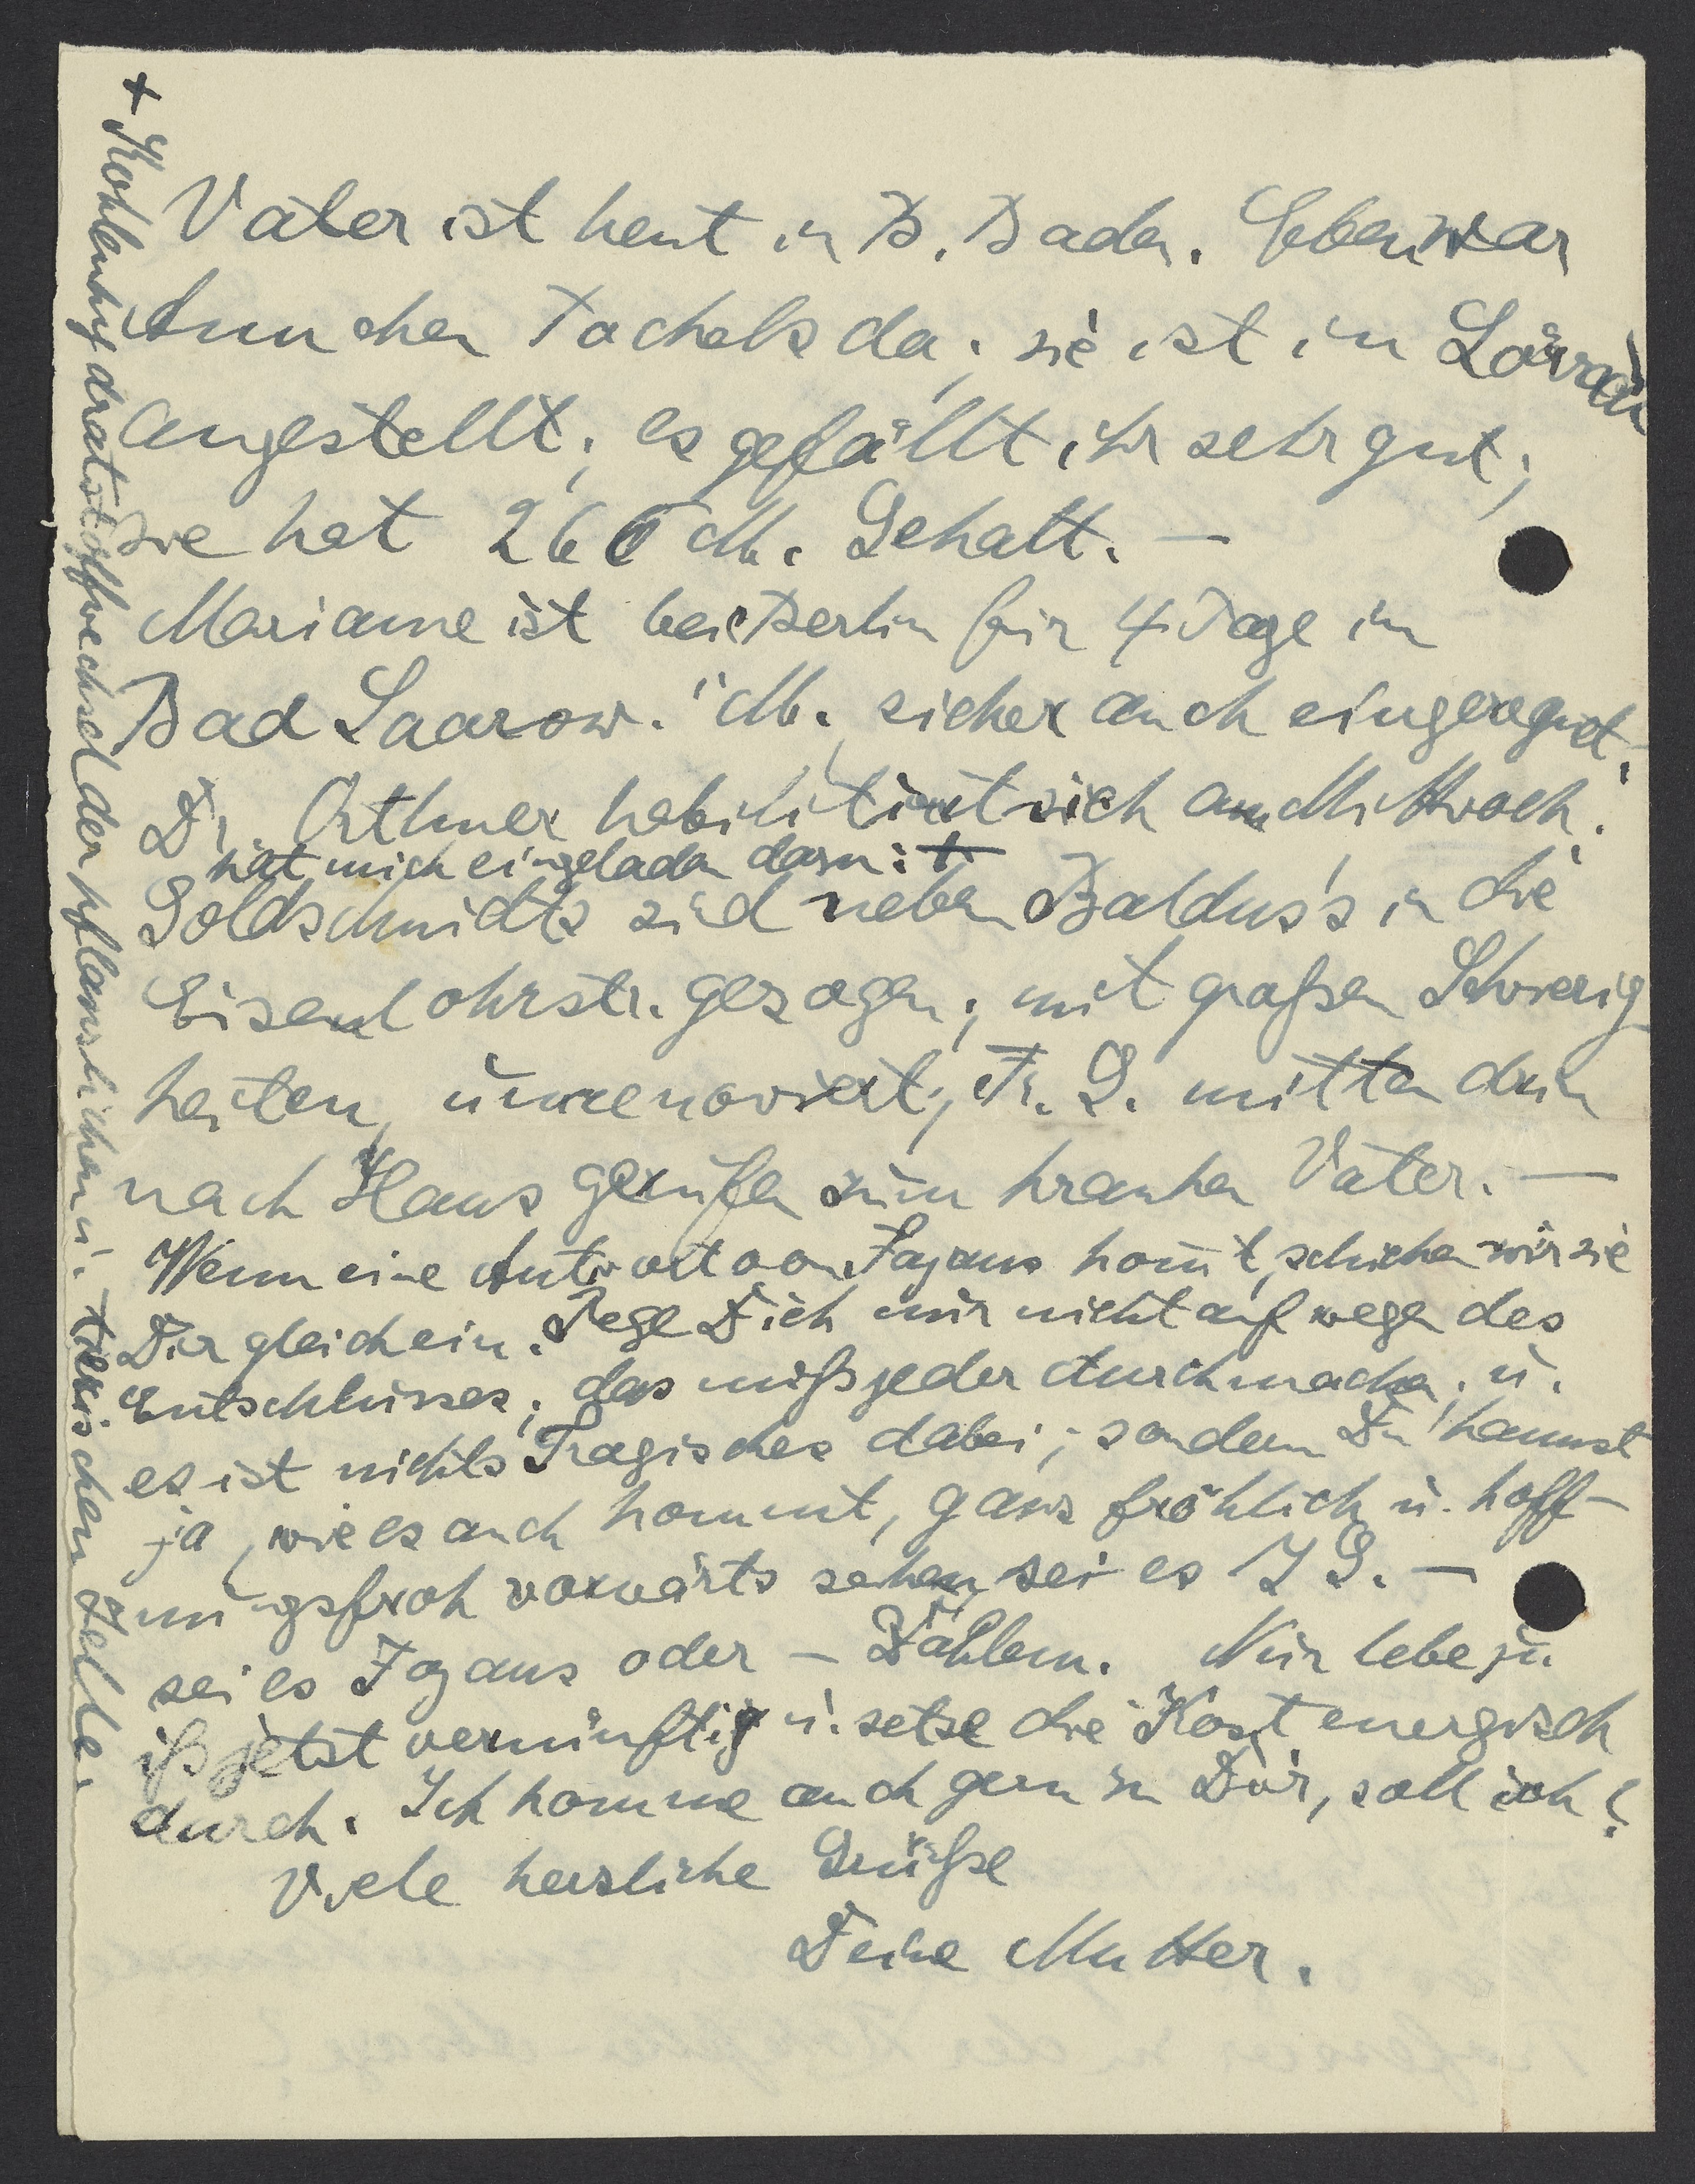 Vater ist heut in B. Baden. Eben war
Ännchen Pachels da; sie ist in Lörrach
angestellt; es gefällt ihr sehr gut;
sie hat 260 M. Gehalt. —
Marianne ist bei Berlin für 4 Tage in
Bad Saarow. "M. sicher auch eingeregnet.
Dr. Orthner habilitiert sich am Mittwoch;
hat mich eingeladen dazu: +
Goldschmidts sind neben Baldus's in die
Eisenlohrstr. gezogen; mit großen Schwierig-
keiten, unrenoviert; Fr. G. mitten drin
nach Haus gerufen zum kranken Vater. —
Wenn eine Antwort von Fajans kom̅t, schicken wir sie
Dir gleich ein. Rege Dich nur nicht auf wegen des
Entschlusses; das muß jeder durchmachen; u.
es ist nichts Tragisches dabei; sondern Du kannst
ja, wie es auch kommt, ganz fröhlich u. hoff-
nungsfroh vorwärts sehen, sei es I G. —
sei es Fajans oder — Dahlem. Nur lebe ju
iß jetzt vernünftig u. setze die Kost energisch
durch. Ich komme auch gern zu Dir, soll ich?
Viele herzliche Grüße
Deine Mutter.
+ Kohlenhydratstoffwechsel der pflanzlichen u. tierischen Zelle.